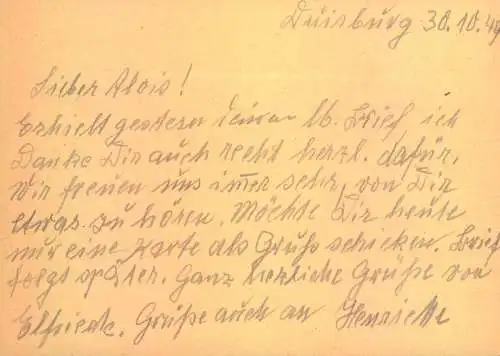 Duisburg 30.10.49
Lieber Alois!
Erhielt gestern deinen lb. Brief, ich
Danke Dir auch recht herzl. dafür.
Wir freuen uns immer sehr, von Dir
etwas zu hören. Möchte Dir heute
nur eine Karte als Gruß schicken. Brief
folgt später. Ganz herzliche Grüße von
Elfriede. Grüße auch an Henriette